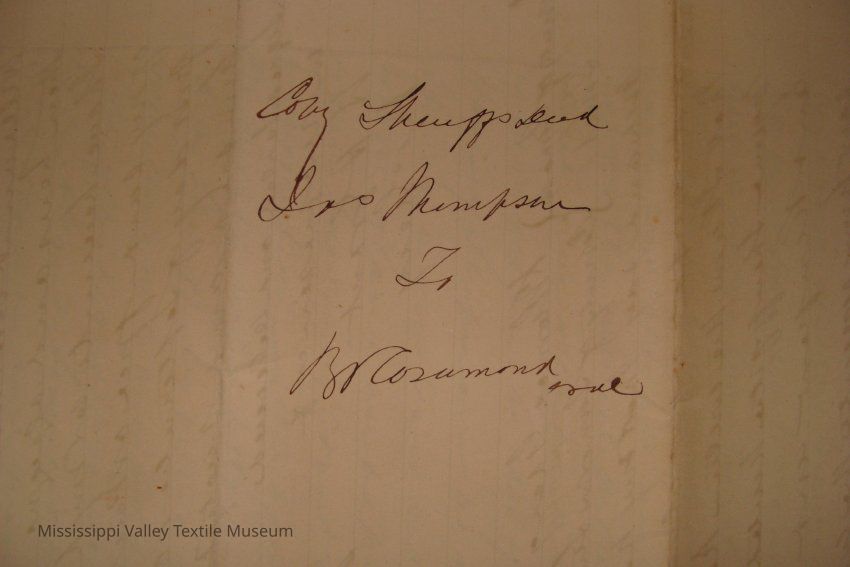 Copy Sheriffs Deed
Jas Thompson
To
B Rosamond
Mississippi Valley Textile Museum